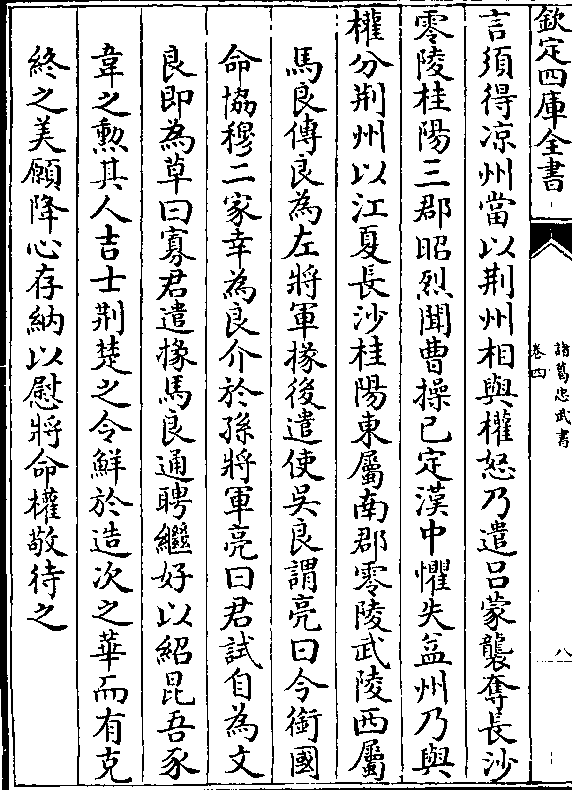 欽定四庫全書
諸葛忠武書
卷四
八
言須得凉州當以荆州相與權怒乃遣吕蒙襲奪長沙
零陵桂陽三郡昭烈聞曹操已定漢中懼失益州乃與
權分荆州以江夏長沙桂陽東屬南郡零陵武陵西屬
馬良傳良為左將軍掾後遣使吳良謂亮曰今銜國
命協穆二家幸為良介於孫將軍亮曰君試自為文
良即為草曰寡君遣掾馬良通聘繼好以紹昆吾豕
韋之勲其人吉士荆楚之令鮮於造次之華而有克
終之美願降心存納以慰將命權敬待之